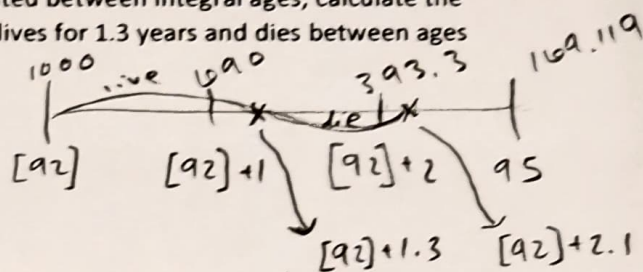 ted between integral ages, calculate the
lives for 1.3 years and dies between ages
1000 live 690 die 393.3 169.119
[92] [92]+1 [92]+2 95
[92]+1.3 [92]+2.1